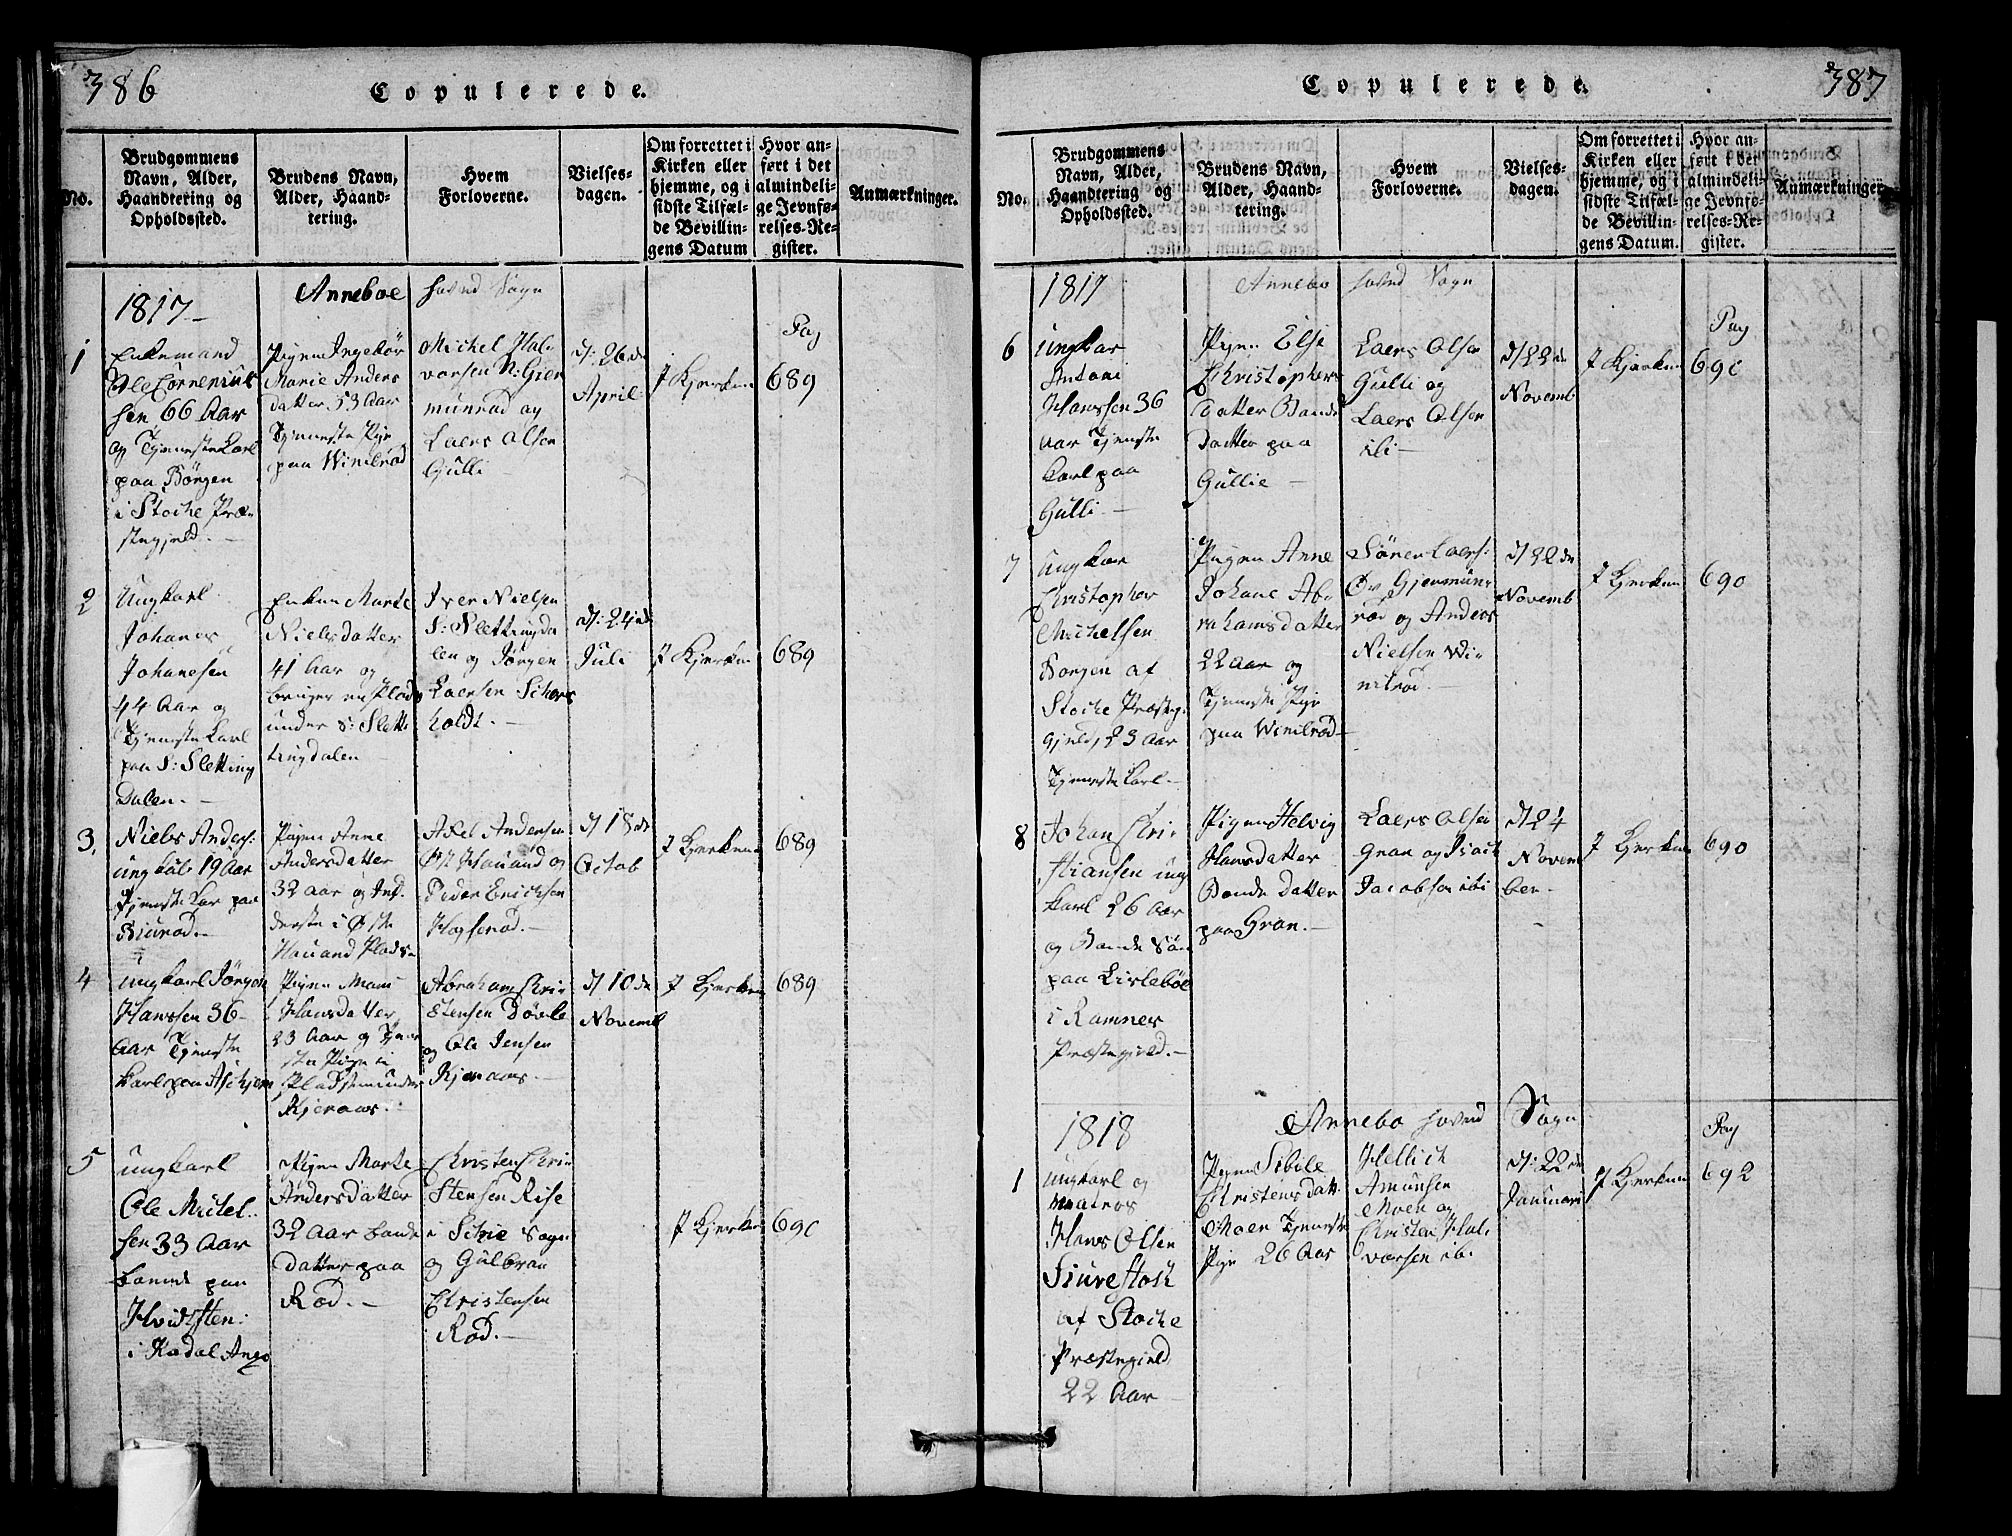 386
Copulerede.
No.
Brudgommens
Navn, Alder,
Haandtering og
Opholdssted.
Brudens Navn,
Alder, Haand-
tering.
Hvem
Forloverne.
Vielses-
dagen.
Om forrettet i
Kirken eller
hjemme, og i
sidste Tilfæl-
de Bevillin-
gens Datum
Hvor an-
ført i det
almindeli-
ge Jevnfø-
relses-Re-
gister.
Anmærkninger.
1817 Anneboe hoved Sogn
Pag
1
Enkemand
Ole Cornenius
sen 66 Aar
og Tjenestekarl
paa Börgen
i Stocke Præ-
stegjeld.
Pigen Ingebör
Marie Anders
datter 53 Aar
Tjeneste Pige
paa Wimlrød
Michel Hal-
vorsen N: Gier
munrød og
Laers Olsen
Gulli
d: 26de
April
I Kjerken
689
2
Ungkarl
Johanes
Johanesen
44 Aar og
Tjenestekarl
paa S: Sletting
Dalen.
Enken Marte
Nielsdatter
41 Aar og
bruger en Plads
under S: Slett
tingdalen
Iver Nielsen
S: Slettingda
len og Jørgen
Laersen Schors
holdt.
d: 24de
Juli
I Kjerken
689
3.
Niels Anders:
ungkarl 19 Aar
Tjeneste kar paa
Biurød.
Pigen Anne
Andersdatter
32 Aar og Ind
derste i Øste
Hauand Plads
Axel Andersen
Øst Hauand og
Peder Ericksen
Hogsrød.
d/ 18de
Octob
I Kjerken
689
4
ungkarl Jörgen
Hanssen 36
Aar Tjeneste
karl paa Aschjem
Pigen Maris
Hansdatter
23 Aar og Tjene
ste Pige i
Pladsen under
Kjeraas.
Abraham Chri
stensen Dövle
og Ole Jensen
Kjeraas.
d/ 10de
Novemb
I Kjerken
689
5
ungkarl
Ole Michel
sen 33 Aar
bonde paa
Hvidsten
i Rødal Ango
Pigen Marte
Andersdatter
32 Aar bonde
datter paa
Rød.
Christen Chri
stensen Rise
i Schie Sogn
og Gulbran
Christensen
Rød.
I Kjerken
690
387
Copulerede.
No.
Brudgommens
Navn, Alder,
Haandtering og
Opholdssted.
Brudens Navn,
Alder, Haand-
tering.
Hvem
Forloverne.
Vielses-
dagen.
Om forrettet i
Kirken eller
hjemme, og i
sidste Tilfæl-
de Bevillin-
gens Datum.
Hvor an-
ført i det
almindeli-
ge Jevnfø-
relses-Re-
gister.
Anmærkninger.
1817 Annebo hoved Sogn
Pag
6
ungkar
Antoni
Hanssen 36
Aar Tjeneste
karl paa
Gulli
Pigen Elsi
Christophers
datter Bonde
Datter paa
Gullie
Laers Olsen
Gulli og
Laers Olsen
ibi
d/ 22de
Novemb
I Kjerken
690
7
ungkar
Christopher
Michelsen
Borgen af
Stocke Præste
gjeld, 23 Aar
Tjeneste karl.
Pigen Anne
Johane Ab-
rahamsdatter
22 Aar og
Tjeneste Pige
paa Wimlrød
Sören Laers:
Öv Gjermun-
rød og Anders
Nielsen Wi-
milrød.
d/ 22de
Novemb
I Kjerken
690
8
Johan Chri
stiansen ung
karl 26 Aar
og Bonde Sön
paa Lislebøe
i Ramnes
Præstegjeld.
Pigen Helvig
Hansdatter
Bonde Datter
paa Gran.
Laers Olsen
Gran og Isack
Jacobsen ibi
d/ 24
Novem
ber
I Kjerken
690
1818 Annebo hoved Sogn
Pag
1
ungkarl og
matros
Hans Olsen
Siurestock
af Stocke
Præstegield
22 Aar
Pigen Sibile
Christensdatt
Moen Tjeneste
Pige 26 Aar
Hellich
Amunsen
Moen og
Christen Hal
varsen ibi
d: 22de
Januari
I Kjerken
692